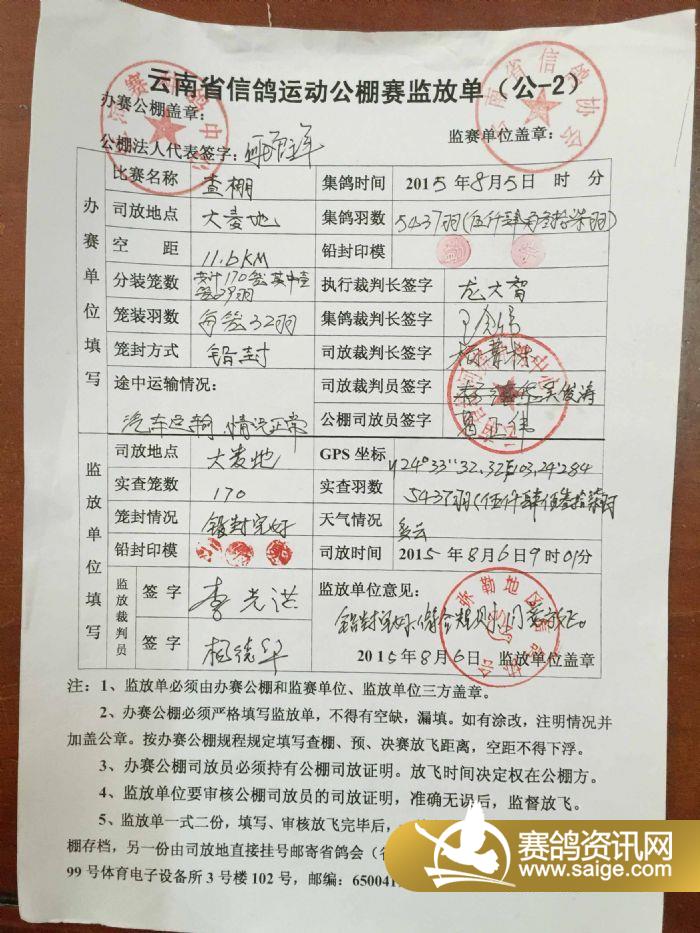 云南省信鸽运动公棚赛监放单（公-2）
办赛公棚盖章：
监赛单位盖章：
公棚法人代表签字：
办赛单位填写
比赛名称 查棚 集鸽时间 2015年8月5日 时 分
司放地点 大麦地 集鸽羽数 5437羽
空 距 11.6KM 铅封印模
分装笼数 共计170笼 其中 29羽 执行裁判长签字 龙大智
笼装羽数 每笼32羽 集鸽裁判长签字
笼封方式 铅封 司放裁判长签字
途中运输情况： 司放裁判员签字 吴俊涛
汽车运输 情况正常 公棚司放员签字
监放单位填写
司放地点 大麦地 GPS 坐标
实查笼数 170 实查羽数 5437羽
笼封情况 铅封完好 天气情况 多云
铅封印模 司放时间 2015年8月6日9时01分
监放裁判员
签 字 李光洪 监放单位意见：
铅封完好
签 字 杨德华 2015年8月6日 监放单位盖章
弥勒地区
注：1、监放单必须由办赛公棚和监赛单位、监放单位三方盖章。
2、办赛公棚必须严格填写监放单，不得有空缺，漏填。如有涂改，注明情况并
加盖公章。按办赛公棚规程规定填写查棚、预、决赛放飞距离，空距不得下浮。
3、办赛公棚司放员必须持有公棚司放证明。放飞时间决定权在公棚方。
4、监放单位要审核公棚司放员的司放证明，准确无误后，监督放飞。
5、监放单一式二份，填写、审核放飞完毕后，
棚存档，另一份由司放地直接挂号邮寄省鸽会（
99号体育电子设备所3号楼102号，邮编：65004
赛鸽资讯网
www.saige.com